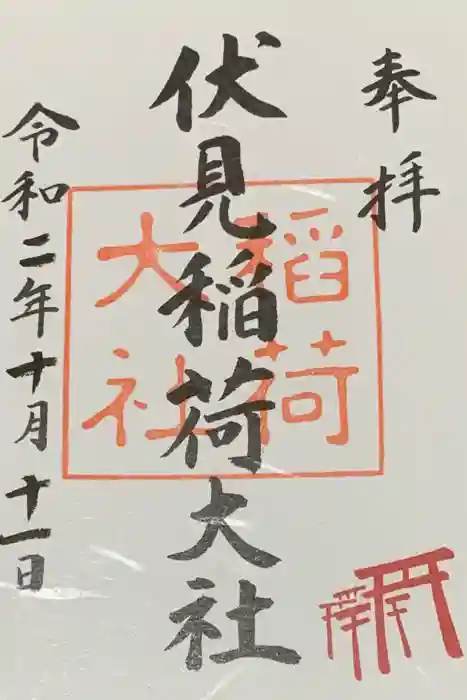 奉拝
伏見稲荷大社
稲荷
大社
令和二年十月十一日